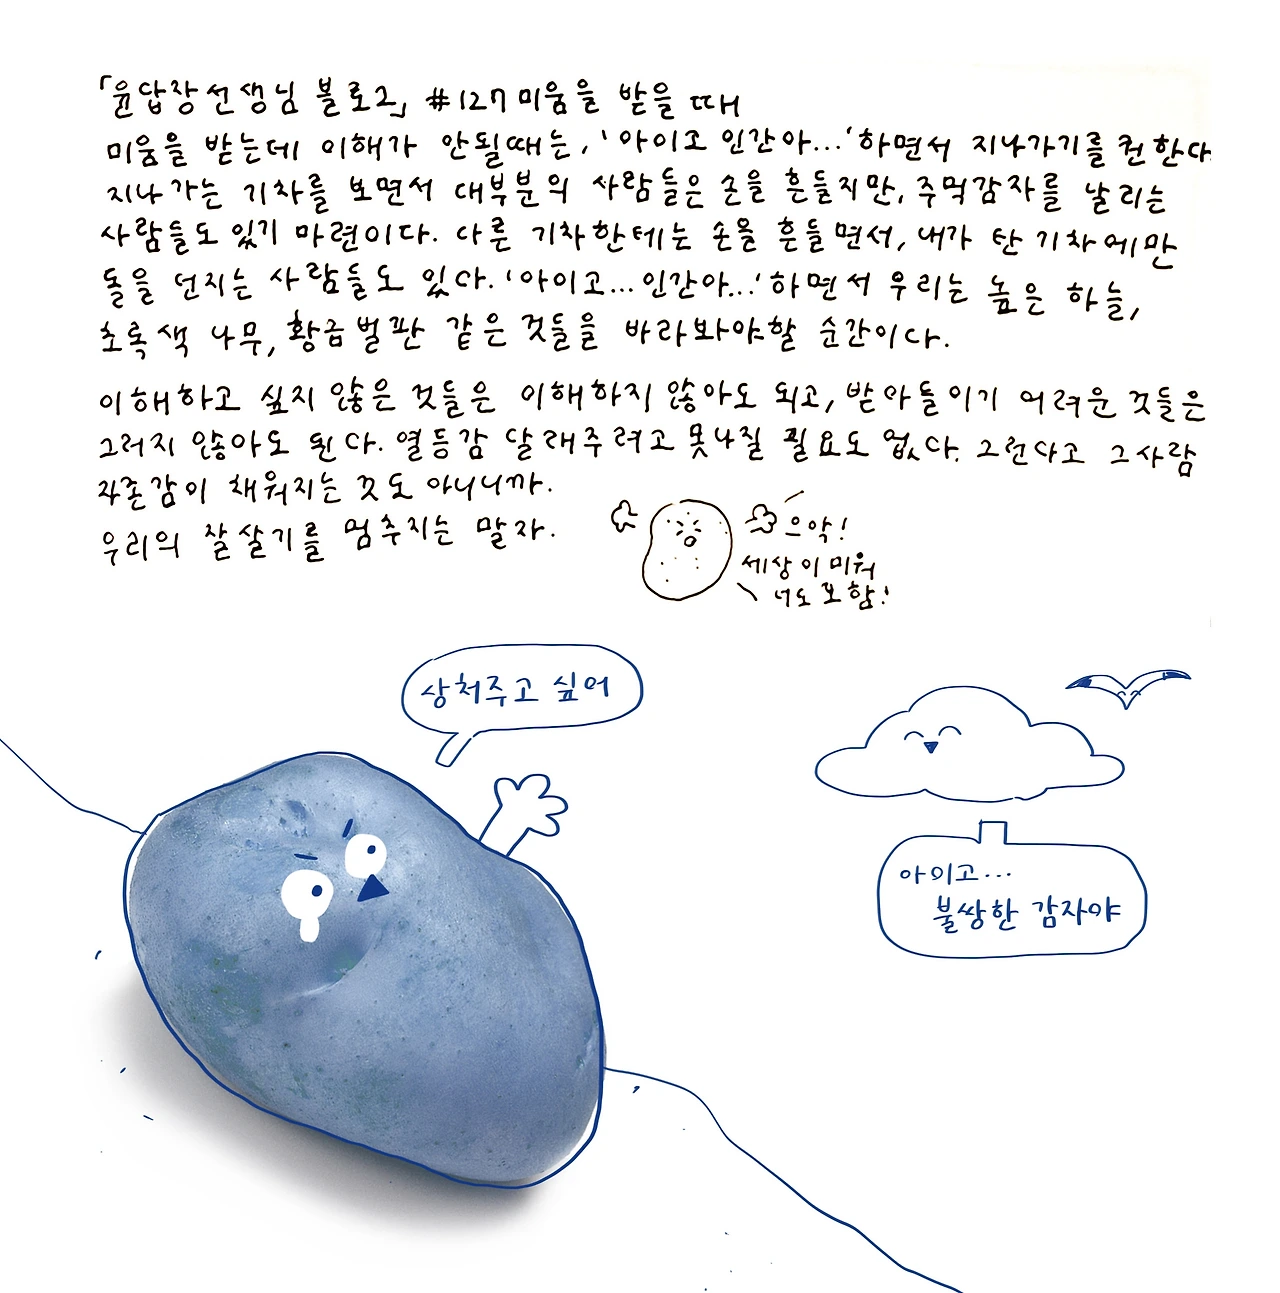 「윤답장선생님 블로그」 #127 미움을 받을 때
미움을 받는데 이해가 안될때는, '아이고 인간아...'하면서 지나가기를 권한다
지나가는 기차를 보면서 대부분의 사람들은 손을 흔들지만, 주먹감자를 날리는
사람들도 있기 마련이다. 다른 기차한테는 손을 흔들면서, 내가 탄 기차에만
돌을 던지는 사람들도 있다. '아이고... 인간아...'하면서 우리는 높은 하늘,
초록색 나무, 황금벌판 같은 것들을 바라봐야할 순간이다.
이해하고 싶지 않은 것들은 이해하지 않아도 되고, 받아들이기 어려운 것들은
그러지 않아도 된다. 열등감 달래주려고 못나질 필요도 없다. 그런다고 그사람
자존감이 채워지는 것도 아니니까.
우리의 잘살기를 멈추지는 말자.
으악!
세상이 미워
너도 포함!
상처주고 싶어
아이고...
불쌍한 감자야